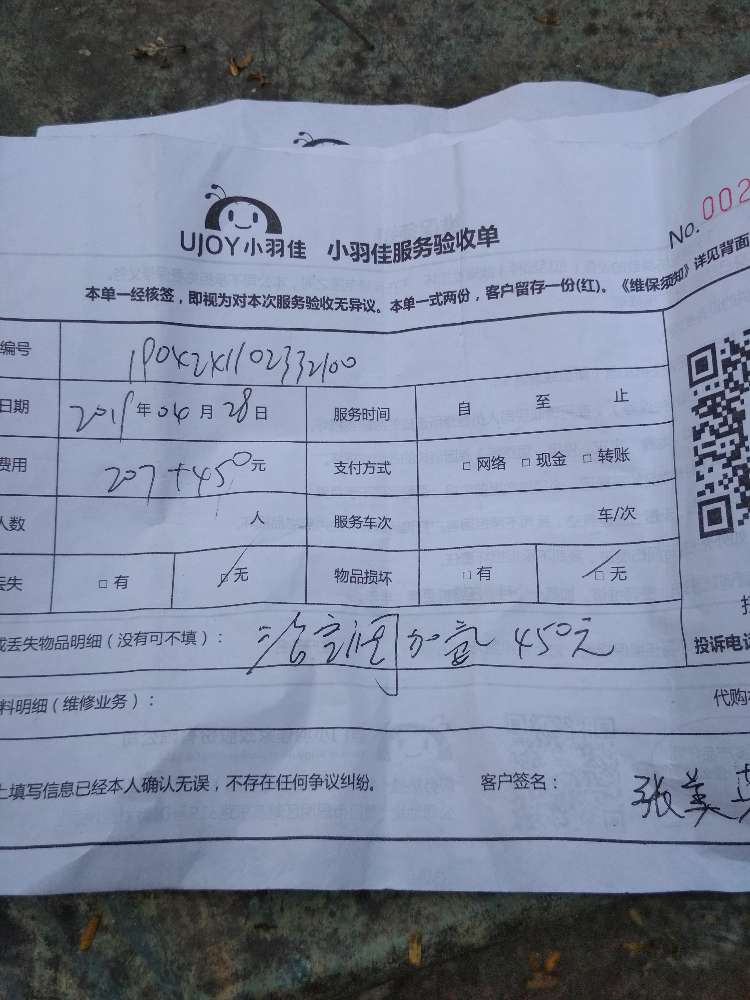 UJOY小羽佳 小羽佳服务验收单
No. 002
本单一经核签，即视为对本次服务验收无异议。本单一式两份，客户留存一份(红)。《维保须知》详见背面
编号 1904241102332100
日期 2019年04月28日 服务时间 自 至 止
费用 207+450元 支付方式 □网络 □现金 □转账
人数 人 服务车次 车/次
丢失 □有 □无 物品损坏 □有 □无
或丢失物品明细（没有可不填）： 空调加氟 450元
投诉电话
料明细（维修业务）： 代购
上填写信息已经本人确认无误，不存在任何争议纠纷。 客户签名： 张美英